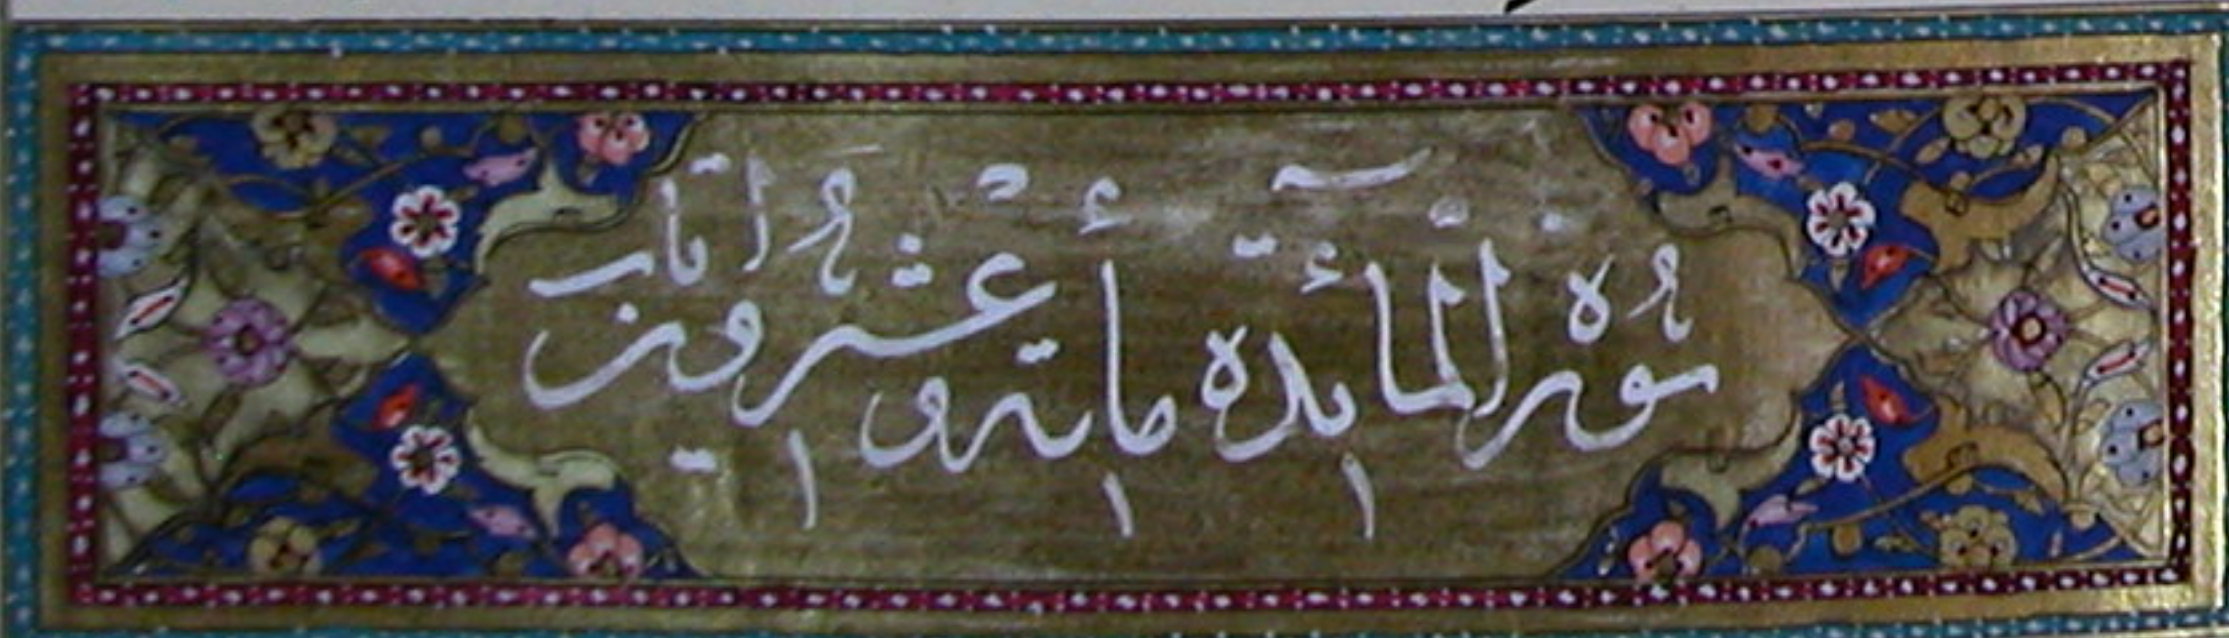 سورة المآئدة مائة وعشرون اٰيات